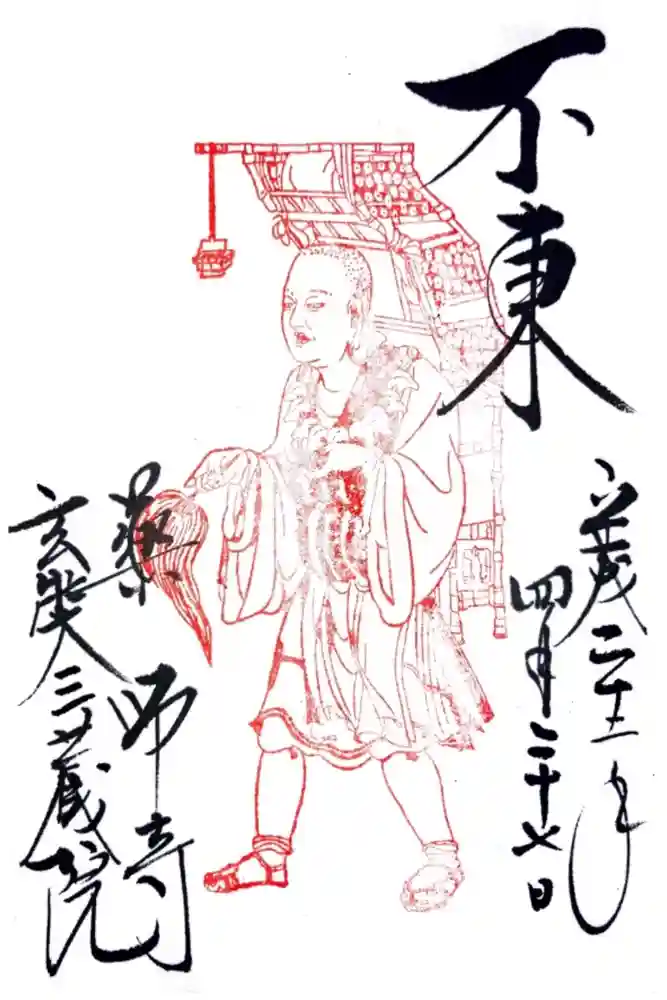 不東
平成 年
四月二十七日
薬師寺
玄奘三蔵院